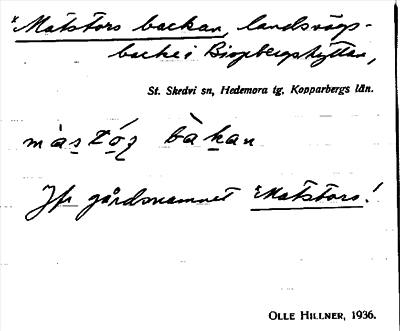 *Matstors backan, landsvägs-
backe i Bispbergshyttan,
St. Skedvi sn, Hedemora tg. Kopparbergs län.
màstóz bàkan
Jfr gårdsnamnet *Matstors!
OLLE HILLNER, 1936.